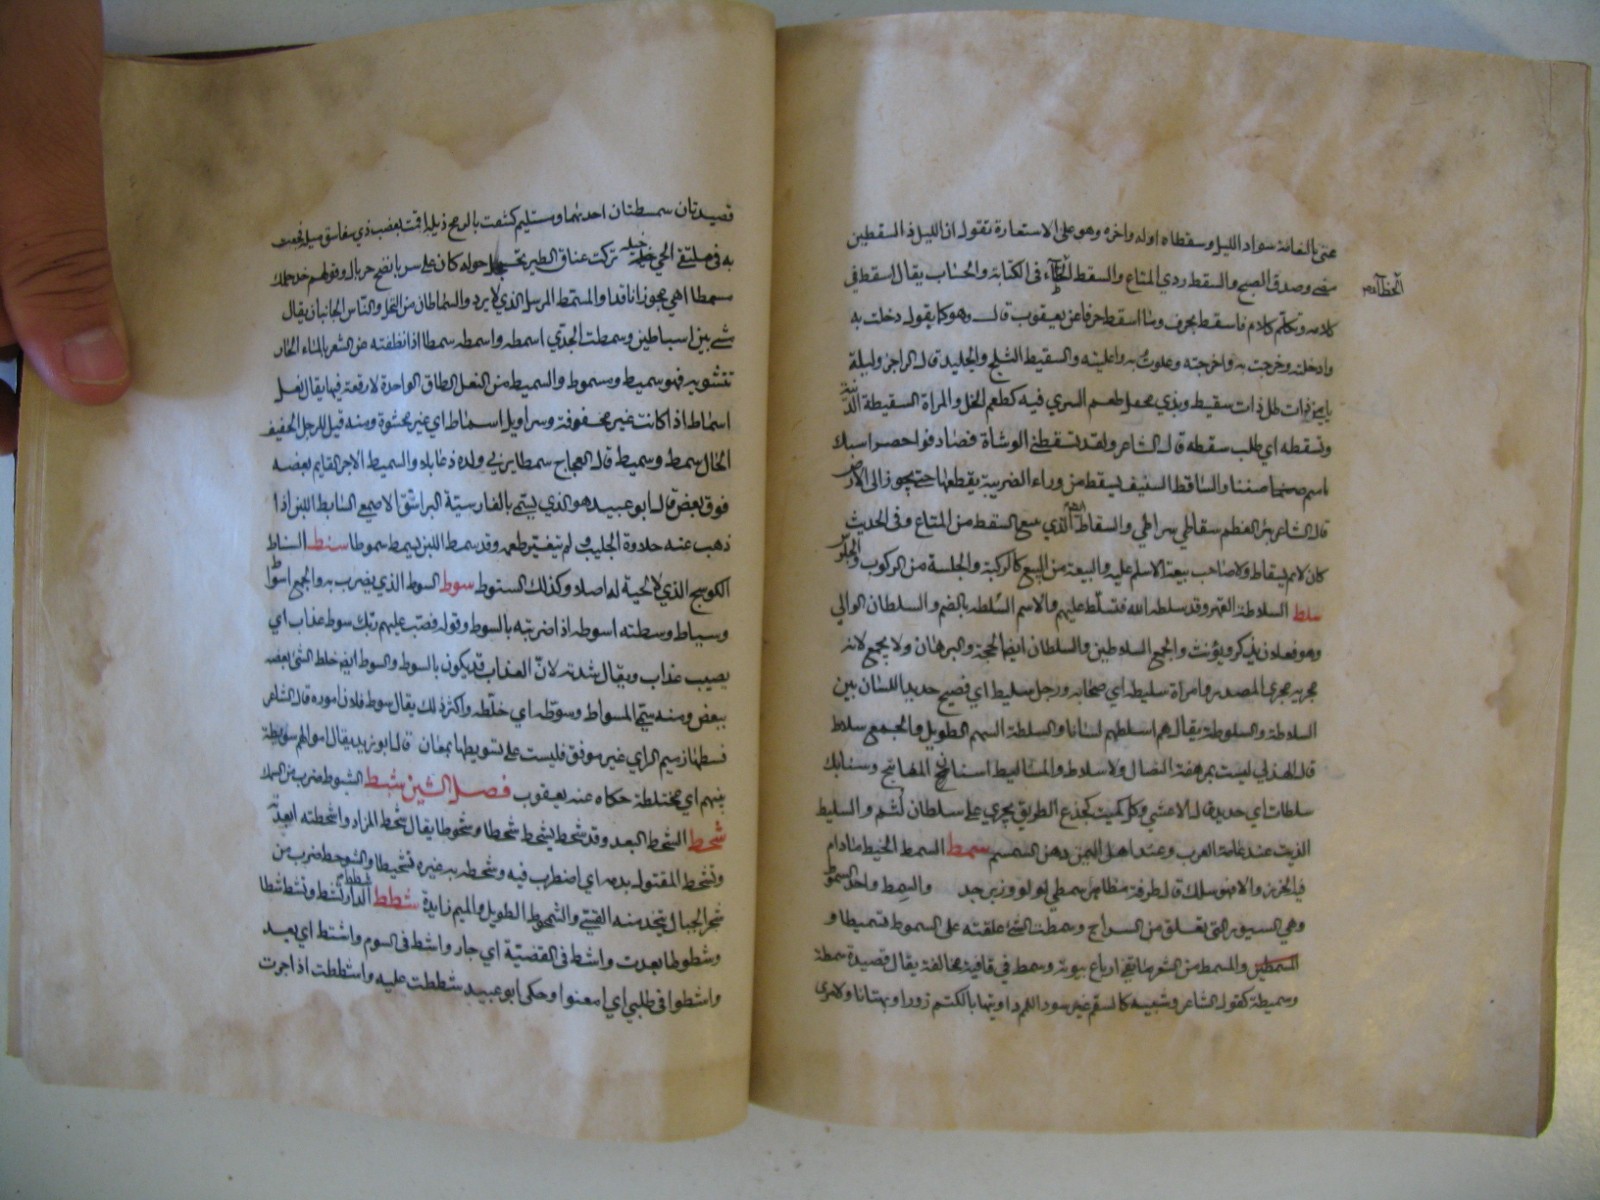 عنى بالنعامة سواد الليل وسقطاه اوله واخره وهو على الاستعارة تقول ان الليل ذا السقطين
مضى وصدق الصبح والسقط ردي المتاع والسقط الخطآء فى الكتابة والحساب يقال اسقط في
الخطآء
كلامه وتكلم بكلام فما سقط بحرف وما اسقط حرفا عن يعقوب قال وهو كما يقول دخلت به
وادخلته وخرجت به واخرجته وعلوت به واعليته والسقيط الثلج والجليد قال الراجز وليلة
يا مي ذات طل ذات سقيط وندي مخضل طعم السري فيه كطعم الخل والمراة السقيطة الدنية
وتسقطه اي طلب سقطه قال الشاعر ولقد تسقطني الوشاة فصادفوا حصرا بسرك
يا اميم ضنينا والساقط السيف يسقط من وراء الضريبة يقطعها حتى يجوز الى الارض
قال الشاعر يتر العظم سقاطي سراطي والسقاط ايضا الذي يبيع السقط من المتاع وفى الحديث
كان لا يمر بسقاط ولا صاحب بيعة الا سلم عليه والبيعة من البيع كالركبة والجلسة من الركوب والجلوس
سلط السلاطة القهر وقد سلطه الله فتسلط عليهم والاسم السلطة بالضم والسلطان الوالي
وهو فعلان يذكر ويؤنث والجمع السلاطين والسلطان ايضا الحجة والبرهان ولا يجمع لانه
مجريه مجري المصدر وامراة سليطة اي صخابة ورجل سليط اي فصيح حديد اللسان بين
السلاطة والسلوطة يقال هم اسلطهم لسانا والسلطة السهم الطويل والجمع سلاط
قال الهذلي ليست بمرهفة النصال ولا سلاط والمساليط اسنان المفاتيح وسنابك
سلطات اي حداد قال الاعشي وكل كميت كجذع الطريق يجري على سلطات لثم والسليط
الزيت عند عامة العرب وعند اهل اليمن دهن السمسم سمط السمط الخيط مادام
فيه الخرز والا فهو سلك قال طرفة مظاهر سمطي لولو وزبرجد والسمط واحد السموط
وهي السيور التى تعلق من السراج وسمطت الشئ علقته على السموط تسميطا و
المسمط من الشعر ما قفي ارباع بيوته وسمط في قافية مخالفة يقال قصيدة مسمطة
وسميطة كقول الشاعر وشيبة كالقسم غير سود اللمم داويتها بالكتم زورا وبهتانا ولامري
قصيدتان سمطتان احديهما ومستليم كشفت بالرمح ذيله اقمت بعضب ذي سفاسق ميله فجعت
به في ملتقى الحي خيله تركت عتاق الطير تحجل حوله كان على سرباله نضح جريال وقولهم خذ حكمك
مسمطا اي مجوزا نافذا والمسمط المرسل الذي لا يرد والسماطان من النخل والناس الجانبان يقال
مشي بين السماطين وسمطت الجدي اسمطه واسمطه سمطا اذا نظفته من الشعر بالماء الحار
لتشويه فهو سميط ومسموط والسميط من النعل الطاق الواحدة لا رقعة فيها يقال نعل
اسماط اذا كانت غير مخصوفة وسراويل اسماط اي غير محشوة ومنه قيل للرجل الخفيف
الحال سمط وسميط قال العجاج سمطا يربي ولدة زعابلا والسميط الاجر القايم بعضه
فوق بعض قال ابو عبيد هو الذي يسمى بالفارسية البراستق الاصمعي السامط اللبن اذا
ذهب عنه حلاوة الحليب ولم يتغير طعمه وقد سمط اللبن يسمط سموطا سنط السناط
الكوسج الذي لا لحية له اصلا وكذلك السنوط سوط السوط الذي يضرب به والجمع اسواط
وسياط وسطته اسوطه اذا ضربته بالسوط وقوله فصب عليهم ربك سوط عذاب اي
نصيب عذاب ويقال شدته لان العذاب قد يكون بالسوط والسوط ايضا خلط الشئ بعضه
ببعض ومنه سمي المسواط وسوطه اي خلطه واكثر ذلك يقال سوط فلان اموره قال الشاعر
فسطها ذميم الراي غير موفق فلست على تسويطها بمعان قال ابو زيد يقال اموالهم سويطة
بينهم اي مختلطة حكاه عنه يعقوب فصل الشين شبط الشبوط ضرب من السمك
شحط الشحط البعد وقد شحط يشحط شحطا وشحوطا يقال شحط المزار واشحطته ابعدته
وتشحط المقتول بدمه اي اضطرب فيه وشحطه به غيره تشحيطا والشوحط ضرب من
شجر الجبال يتخذ منه القسي والشمحوط الطويل والميم زايدة شطط شطت الدار تشط وتشط شطا
وشطوطا بعدت واشط فى القضية اي جار واشط فى السوم واشتط اي بعد
واشطوا فى طلبي اي امعنوا وحكى ابو عبيد شططت عليه واشططت اذا جرت